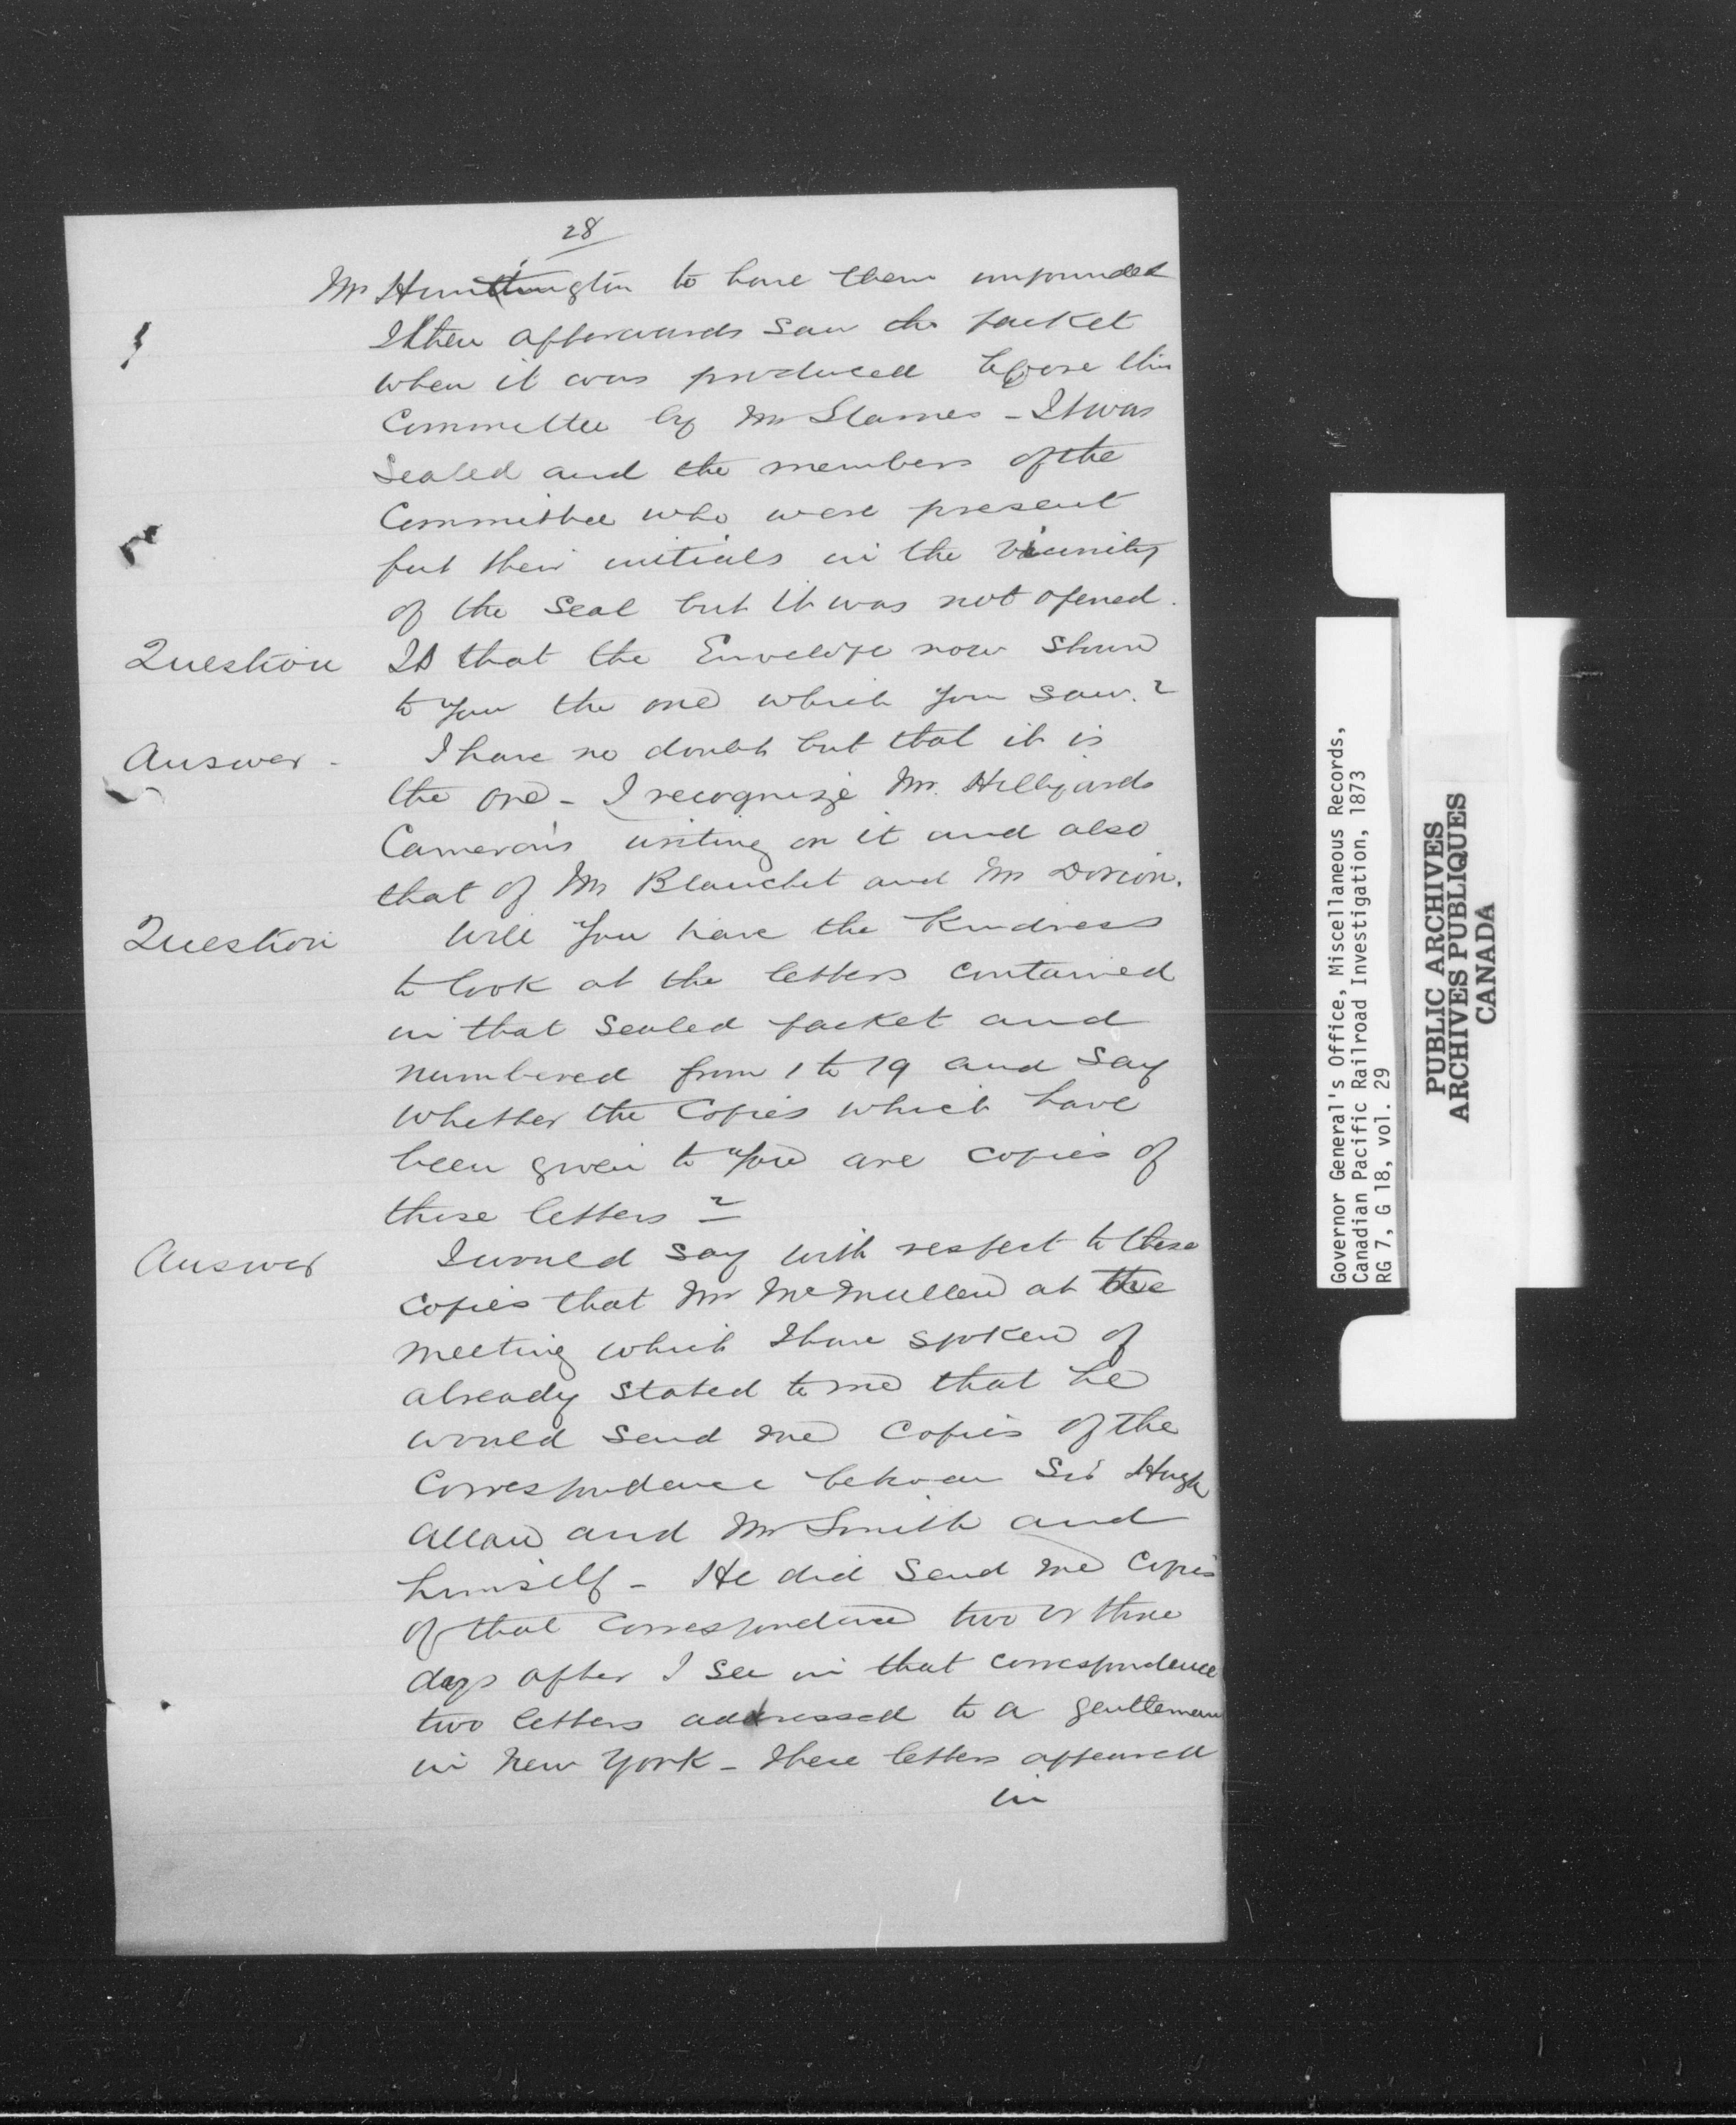 28
Mr Huntington to have them impounded
I then afterwards saw the packet
when it was produced before this
Committee by Mr Starnes - It was
Sealed and the members of the
Committee who were present
put their initials in the vicinity
of the Seal but it was not opened.
Question Is that the Envelope now shewn
to you the one which you saw. ?
Answer - I have no doubt but that it is
the one - I recognize Mr. Hillyards
Cameron's writing on it and also
that of Mr Blanchet and Mr Dorion.
Question Will you have the kindness
to look at the letters contained
in that sealed packet and
numbered from 1 to 19 and say
whether the Copies which have
been given to you are copies of
these letters ?
Answer I would say with respect to these
copies that Mr McMullen at the
meeting which I have spoken of
already stated to me that he
would send me copies of the
Correspondence between Sir Hugh
Allan and Mr Smith and
himself - He did send me copies
of that correspondence two or three
days after I see in that correspondence
two letters addressed to a gentleman
in New York - These letters appeared
in
Governor General's Office, Miscellaneous Records,
Canadian Pacific Railroad Investigation, 1873
RG 7, G 18, vol. 29
PUBLIC ARCHIVES
ARCHIVES PUBLIQUES
CANADA